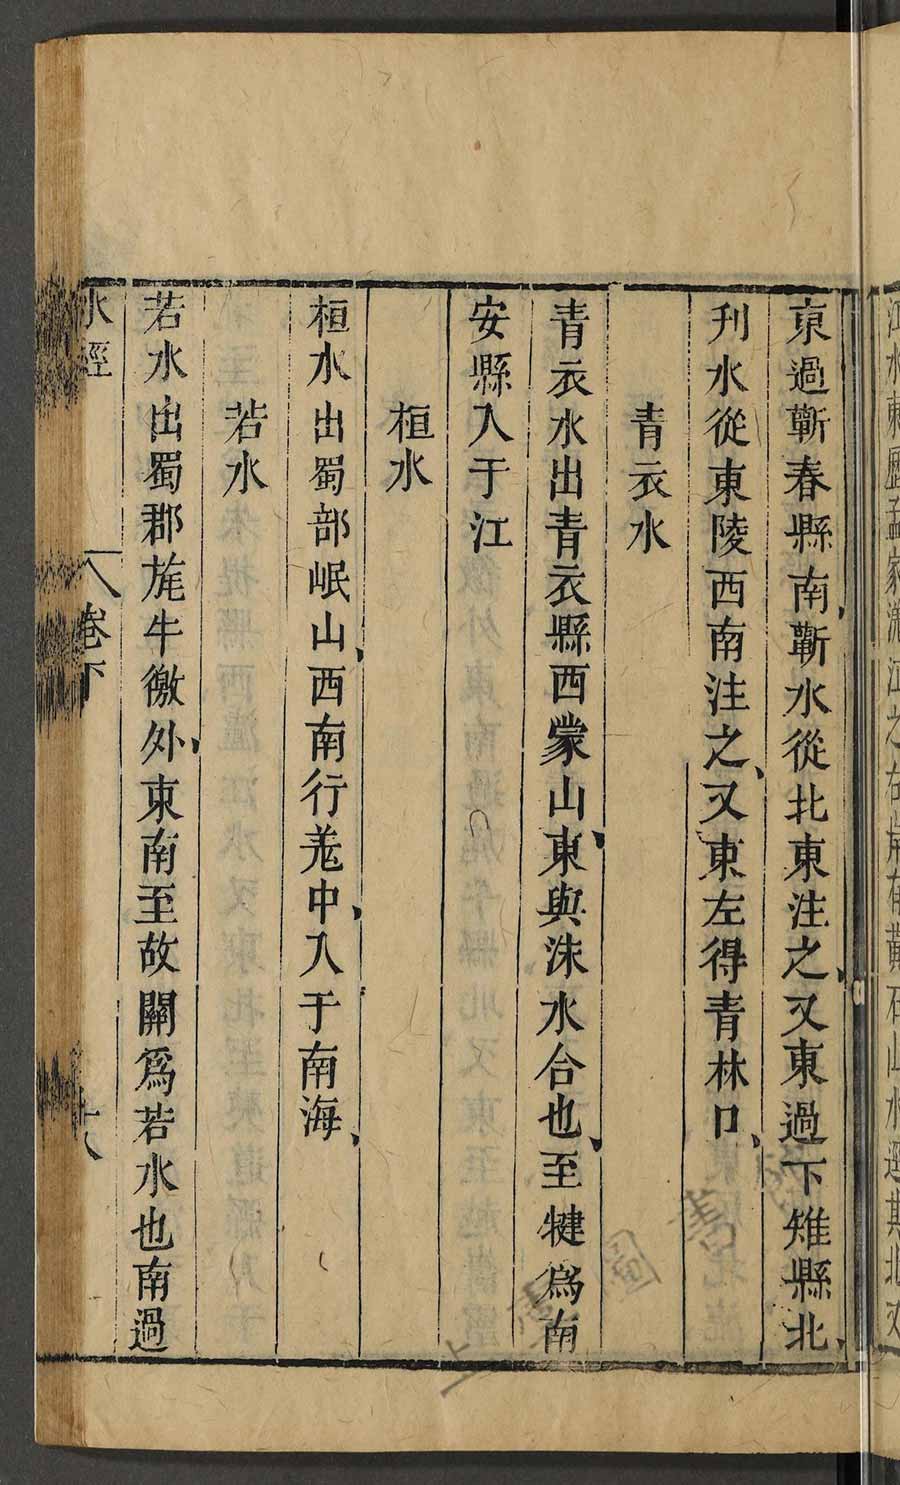 江水東歷孟家溠江之右岸有黃石山水逕其北又
東過蘄春縣南蘄水從北東注之又東過下雉縣北
刋水從東陵西南注之又東左得青林口
青衣水
青衣水出青衣縣西蒙山東與洙水合也至犍爲南
安縣入于江
桓水
桓水出蜀部岷山西南行羗中入于南海
若水
若水出蜀郡旄牛徼外東南至故關爲若水也南過
水經 卷下 十八